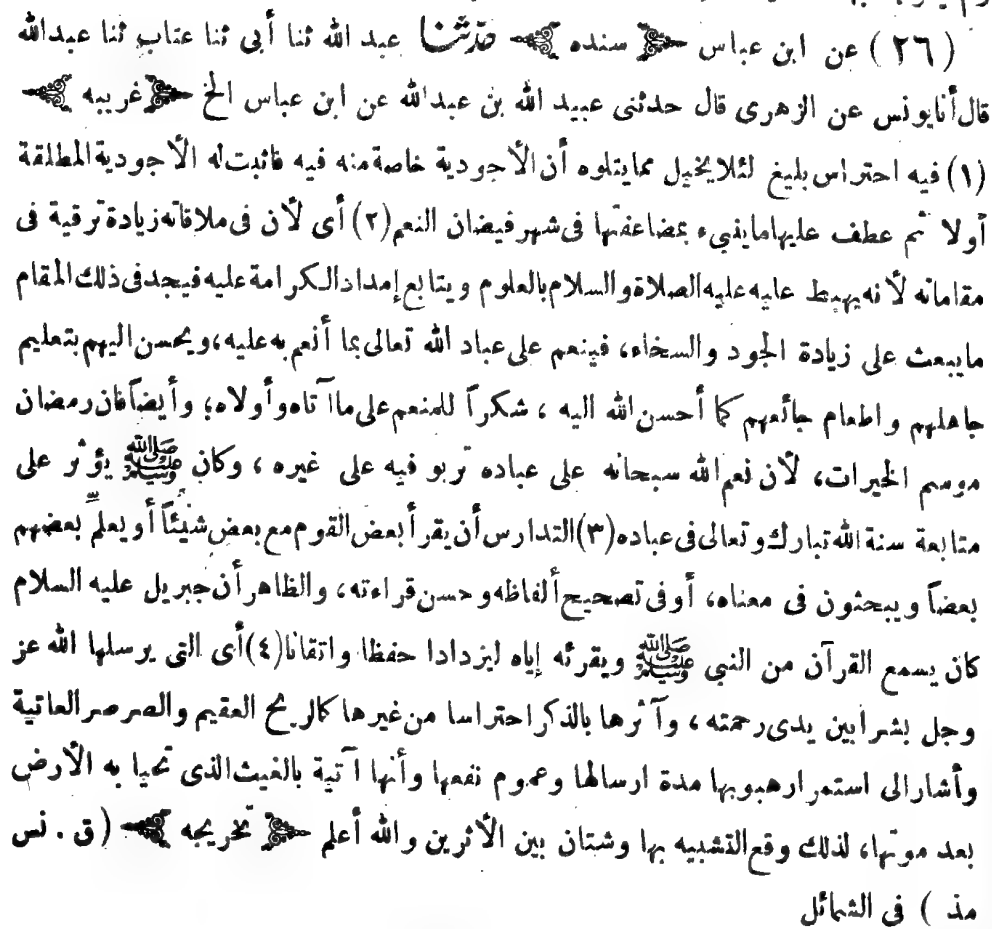 (٢٦) عن ابن عباس سنده حدثنا عبد الله ثنا أبى ثنا عتاب ثنا عبدالله
قال أنا يونس عن الزهرى قال حدثنى عبيد الله بن عبدالله عن ابن عباس الخ غريبه
(١) فيه احتراس بليغ لئلا يخيل مما يتلوه أن الأجودية خاصة منه فيه فاثبت له الأجودية المطلقة
أولا ثم عطف عليها ما ينبىء بمضاعفتها فى شهر فيضان النعم (٢) أى لأن فى ملاقاته زيادة ترقية فى
مقاماته لأنه يهبط عليه عليه الصلاة والسلام بالعلوم ويتابع إمداد الكرامة عليه فيجد فى ذلك المقام
ما يبعث على زيادة الجود والسخاء، فينعم على عباد الله تعالى بما أنعم به عليه، ويحسن اليهم بتعليم
جاهلهم واطعام جائعهم كما أحسن الله اليه ، شكراً للمنعم على ما آتاه وأولاه؛ وأيضاً فان رمضان
موسم الخيرات، لأن نعم الله سبحانه على عباده تربو فيه على غيره ، وكان ﷺ يؤثر على
متابعة سنة الله تبارك وتعالى فى عباده (٣) التدارس أن يقرأ بعض القوم مع بعض شيئاً أو يعلّم بعضهم
بعضاً ويبحثون فى معناه، أو فى تصحيح ألفاظه وحسن قراءته، والظاهر أن جبريل عليه السلام
كان يسمع القرآن من النبى ﷺ ويقرئه إياه ليزدادا حفظا واتقانا (٤) أى التى يرسلها الله عز
وجل بشرا بين يدى رحمته ، وآثرها بالذكر احتراسا من غيرها كالريح العقيم والصرصر العاتية
وأشار الى استمرار هبوبها مدة ارسالها وعموم نفعها وأنها آتية بالغيث الذى تحيا به الأرض
بعد موتها، لذلك وقع التشبيه بها وشتان بين الأثرين والله أعلم تخريجه (ق . نس
مذ ) فى الشمائل